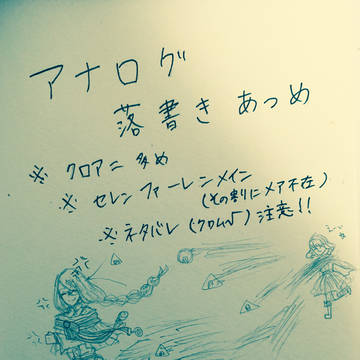 アナログ
落書き あつめ
※ クロアニ 多め
※ セレン ファーレンメイン
(その割にメア不在)
※ネタバレ (クロム√) 注意!!